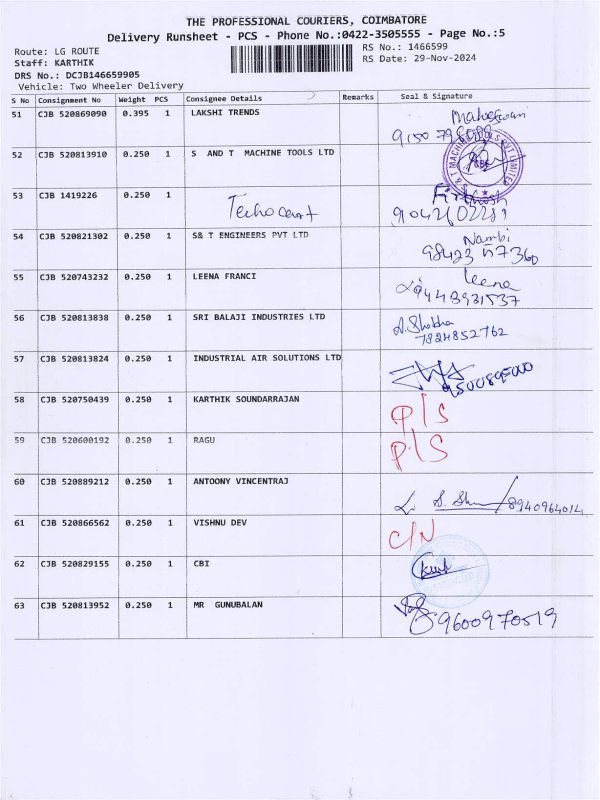 THE PROFESSIONAL COURIERS, COIMBATORE
Delivery Runsheet - PCS - Phone No.:0422-3505555 - Page No.:5
Route: LG ROUTE
RS No.: 1466599
Staff: KARTHIK
RS Date: 29-Nov-2024
DRS No.: DCJB146659905
Vehicle: Two Wheeler Delivery
S No Consignment No Weight PCS Consignee Details Remarks Seal & Signature
51 CJB 520869090 0.395 1 LAKSHI TRENDS
52 CJB 520813910 0.250 1 S AND T MACHINE TOOLS LTD
53 CJB 1419226 0.250 1
54 CJB 520821302 0.250 1 S& T ENGINEERS PVT LTD Nambi
55 CJB 520743232 0.250 1 LEENA FRANCI Leena
56 CJB 520813838 0.250 1 SRI BALAJI INDUSTRIES LTD
7824852762
57 CJB 520813824 0.250 1 INDUSTRIAL AIR SOLUTIONS LTD
58 CJB 520750439 0.250 1 KARTHIK SOUNDARRAJAN P/S
59 CJB 520600192 0.250 1 RAGU P/S
60 CJB 520889212 0.250 1 ANTOONY VINCENTRAJ 8940964014
61 CJB 520866562 0.250 1 VISHNU DEV C/N
62 CJB 520829155 0.250 1 CBI
63 CJB 520813952 0.250 1 MR GUNUBALAN 9600970519